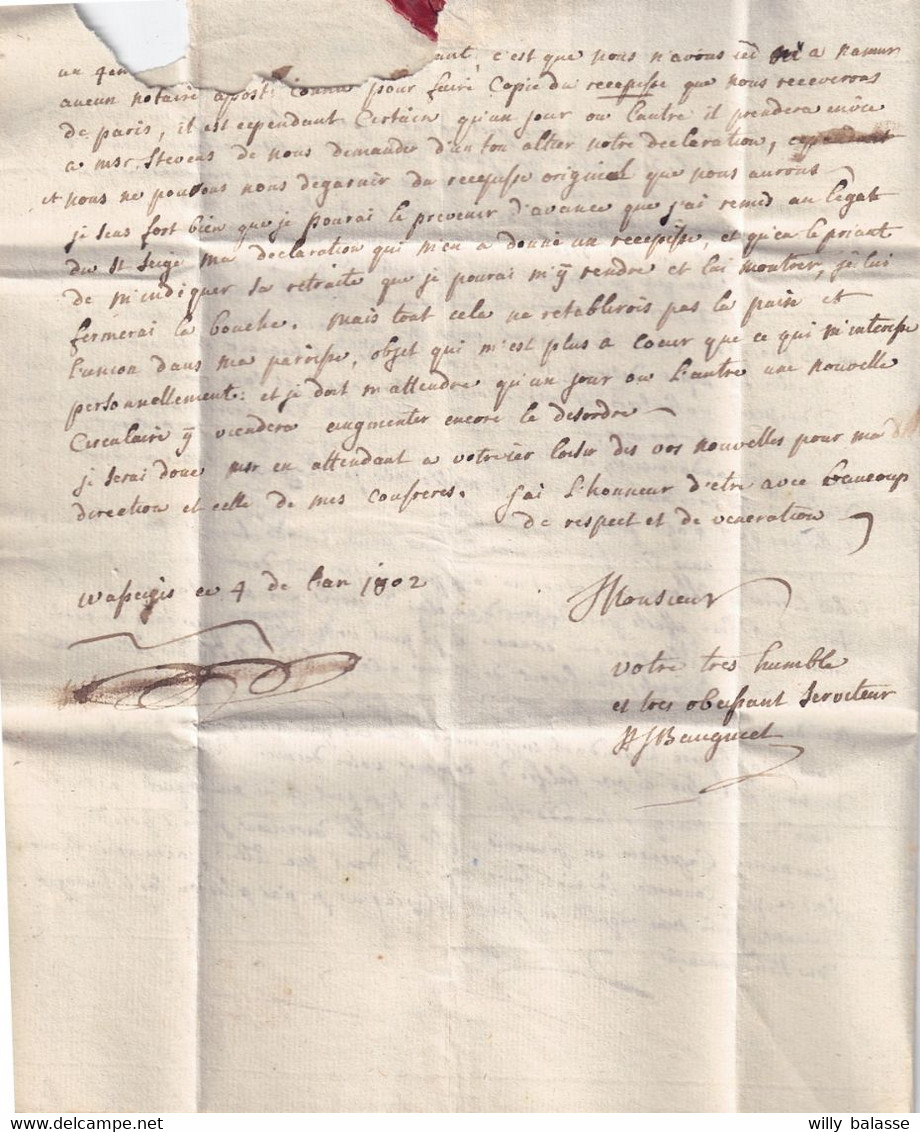 un c'est que nous n'avons ici ni a namur
aucun notaire apost: connu pour faire Copie du recepisse que nous receverons
de paris, il est cependant Certain qu'un jour ou lautre il prendera envie
a msr. Stevens de nous demander d'un ton altier notre declaration,
et nous ne pouvons nous degarnir du recepisse original que nous aurons
je sens fort bien que je pourai le prevenir d'avance que j'ai remis au legat
du st Seige ma declaration qui m'en a donné un recepisse, et qu'en le priant
de m'indiquer sa retraite que je pourai m'ÿ rendre et lui montrer, je lui
fermerai la bouche. mais tout cela ne retablirois pas la paix et
l'union dans ma paroisse, objet qui m'est plus a coeur que ce qui m'interesse
personnellement: et je doit m'attendre qu'un jour ou l'autre une nouvelle
Circulaire ÿ viendera augmenter encore le desordre
je serai donc msr en attendant a votre loisir des vos nouvelles pour ma
direction et celle de mes confreres. j'ai l'honneur d'etre avec beaucoup
de respect et de veneration
waseigis ce 4 de l'an 1802
Monsieur
votre tres humble
et tres obeissant serviteur
Bauguiet
willy balasse